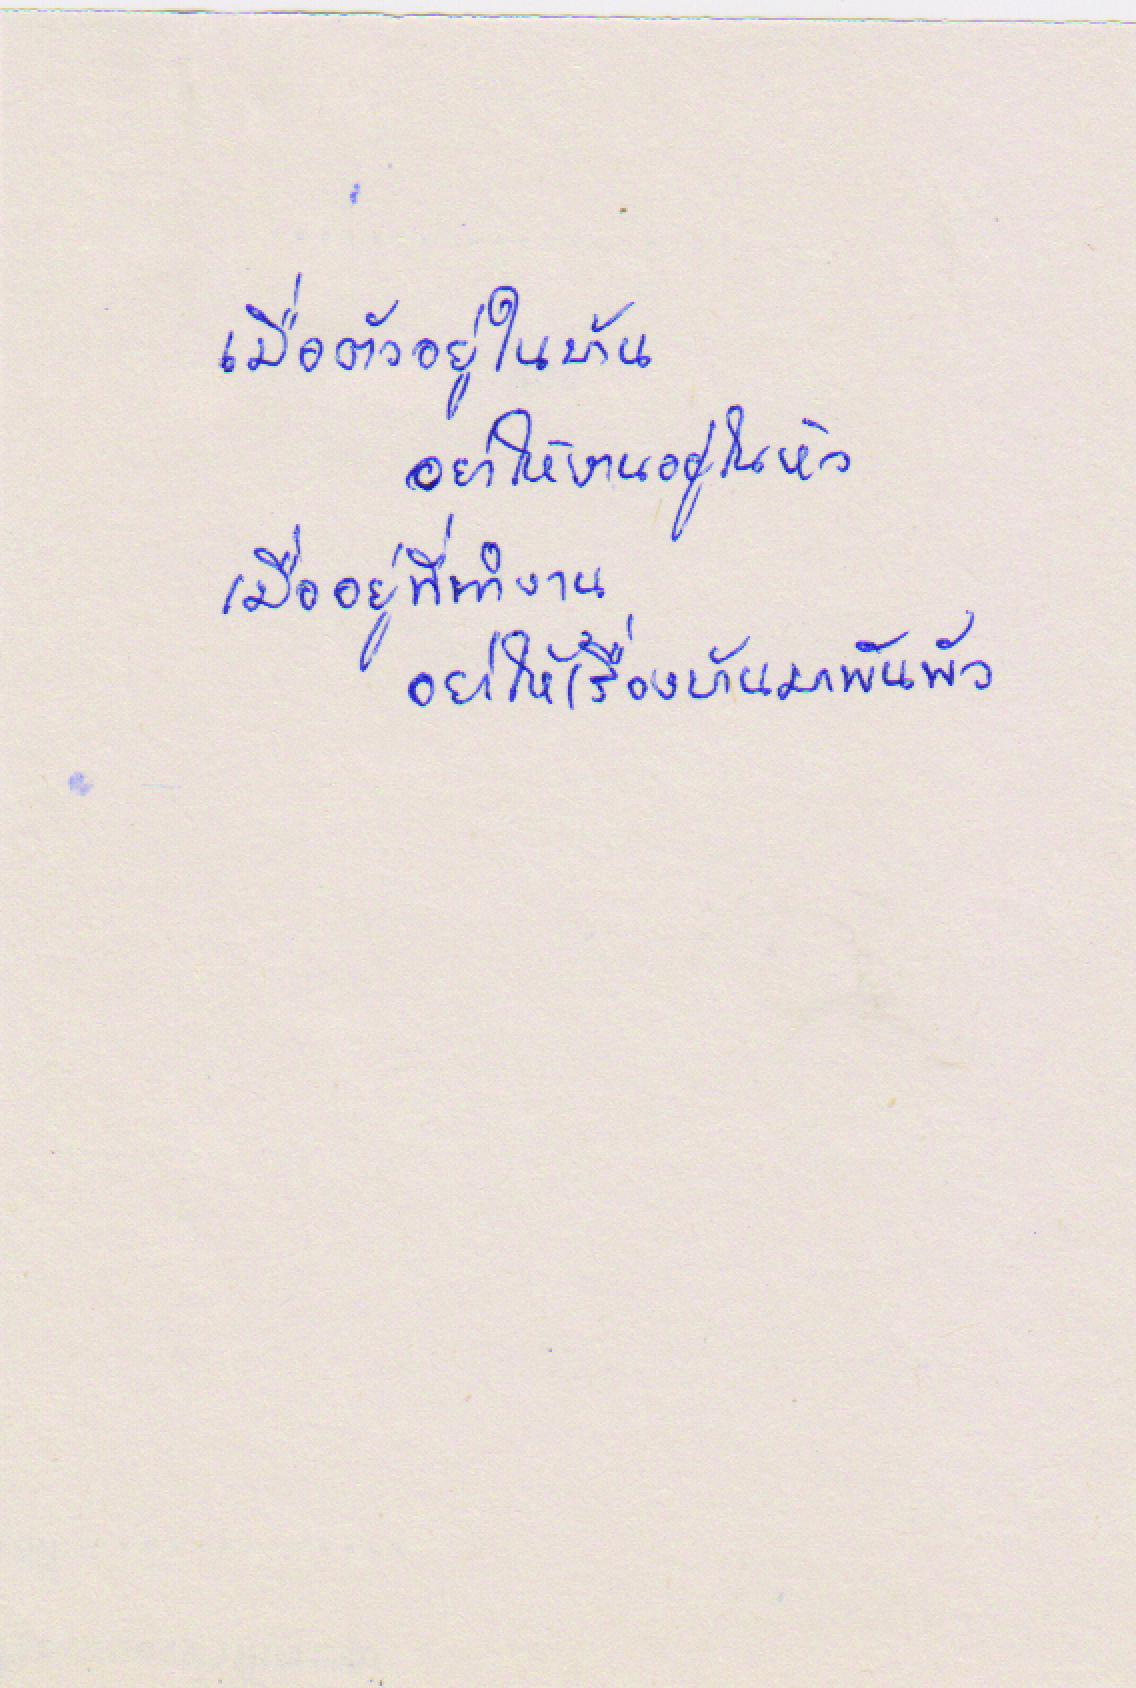 เมื่อตัวอยู่ในบ้าน
อย่าให้งานอยู่ในหัว
เมื่ออยู่ที่ทำงาน
อย่าให้เรื่องบ้านมาพันพัว